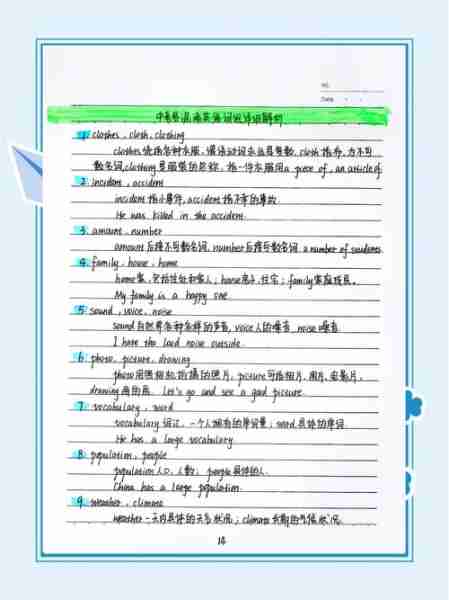 NO.
Date
中考易混淆英语词组详细解析
1. clothes, cloth, clothing
clothes 统指各种衣服,谓语动词永远是复数, cloth 指布,为不可
数名词, clothing 是服装的总称,指一件衣服用 a piece of, an article of
2. incident, accident
incident 指小事件, accident 指不幸的事故
He was killed in the accident.
3. amount, number
amount 后接不可数名词, number 后接可数名词 a number of students
4. family, house, home
home 家,包括住处和家人; house 房子,住宅; family 家庭成员。
My family is a happy one.
5. sound, voice, noise
sound 自然界各种各样的声音, voice 人的嗓音, noise 噪音
I hate the loud noise outside.
6. photo, picture, drawing
photo 用照相机拍摄的照片, picture 可指相片,图片,电影片,
drawing 画的画 Let's go and see a good picture.
7. vocabulary, word
vocabulary 词汇,一个人拥有的单词量; word 具体的单词
He has a large vocabulary.
8. population, people
population 人口,人数; people 具体的人.
China has a large population.
9. weather, climate
weather 一天内具体的天气状况; climate 长期的气候状况
14